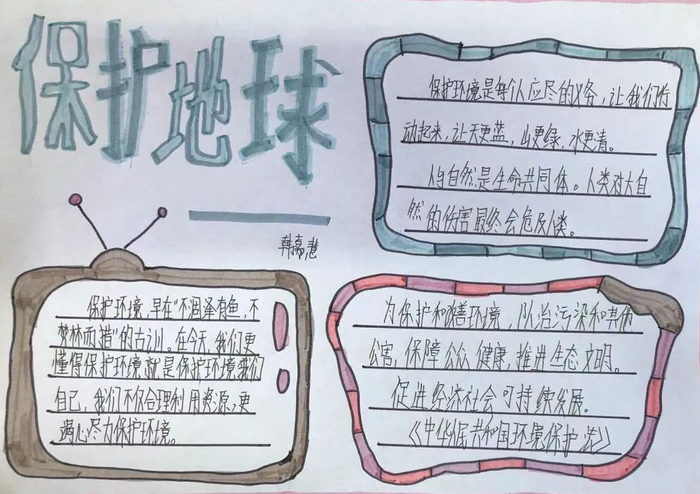 保护地球
韩嘉慧
保护环境是每个人应尽的义务，让我们行
动起来，让天更蓝，山更绿，水更清。
人与自然是生命共同体。人类对大自
然的伤害最终会危及人类。
保护环境，早在“不涸泽而鱼，不
焚林而猎”的古训。在今天，我们更
懂得保护环境就是保护环境我们
自己，我们不仅合理利用资源，更
竭心尽力保护环境。
为保护和改善环境，防治污染和其他
公害，保障公众健康，推进生态文明。
促进经济社会可持续发展。
《中华人民共和国环境保护法》